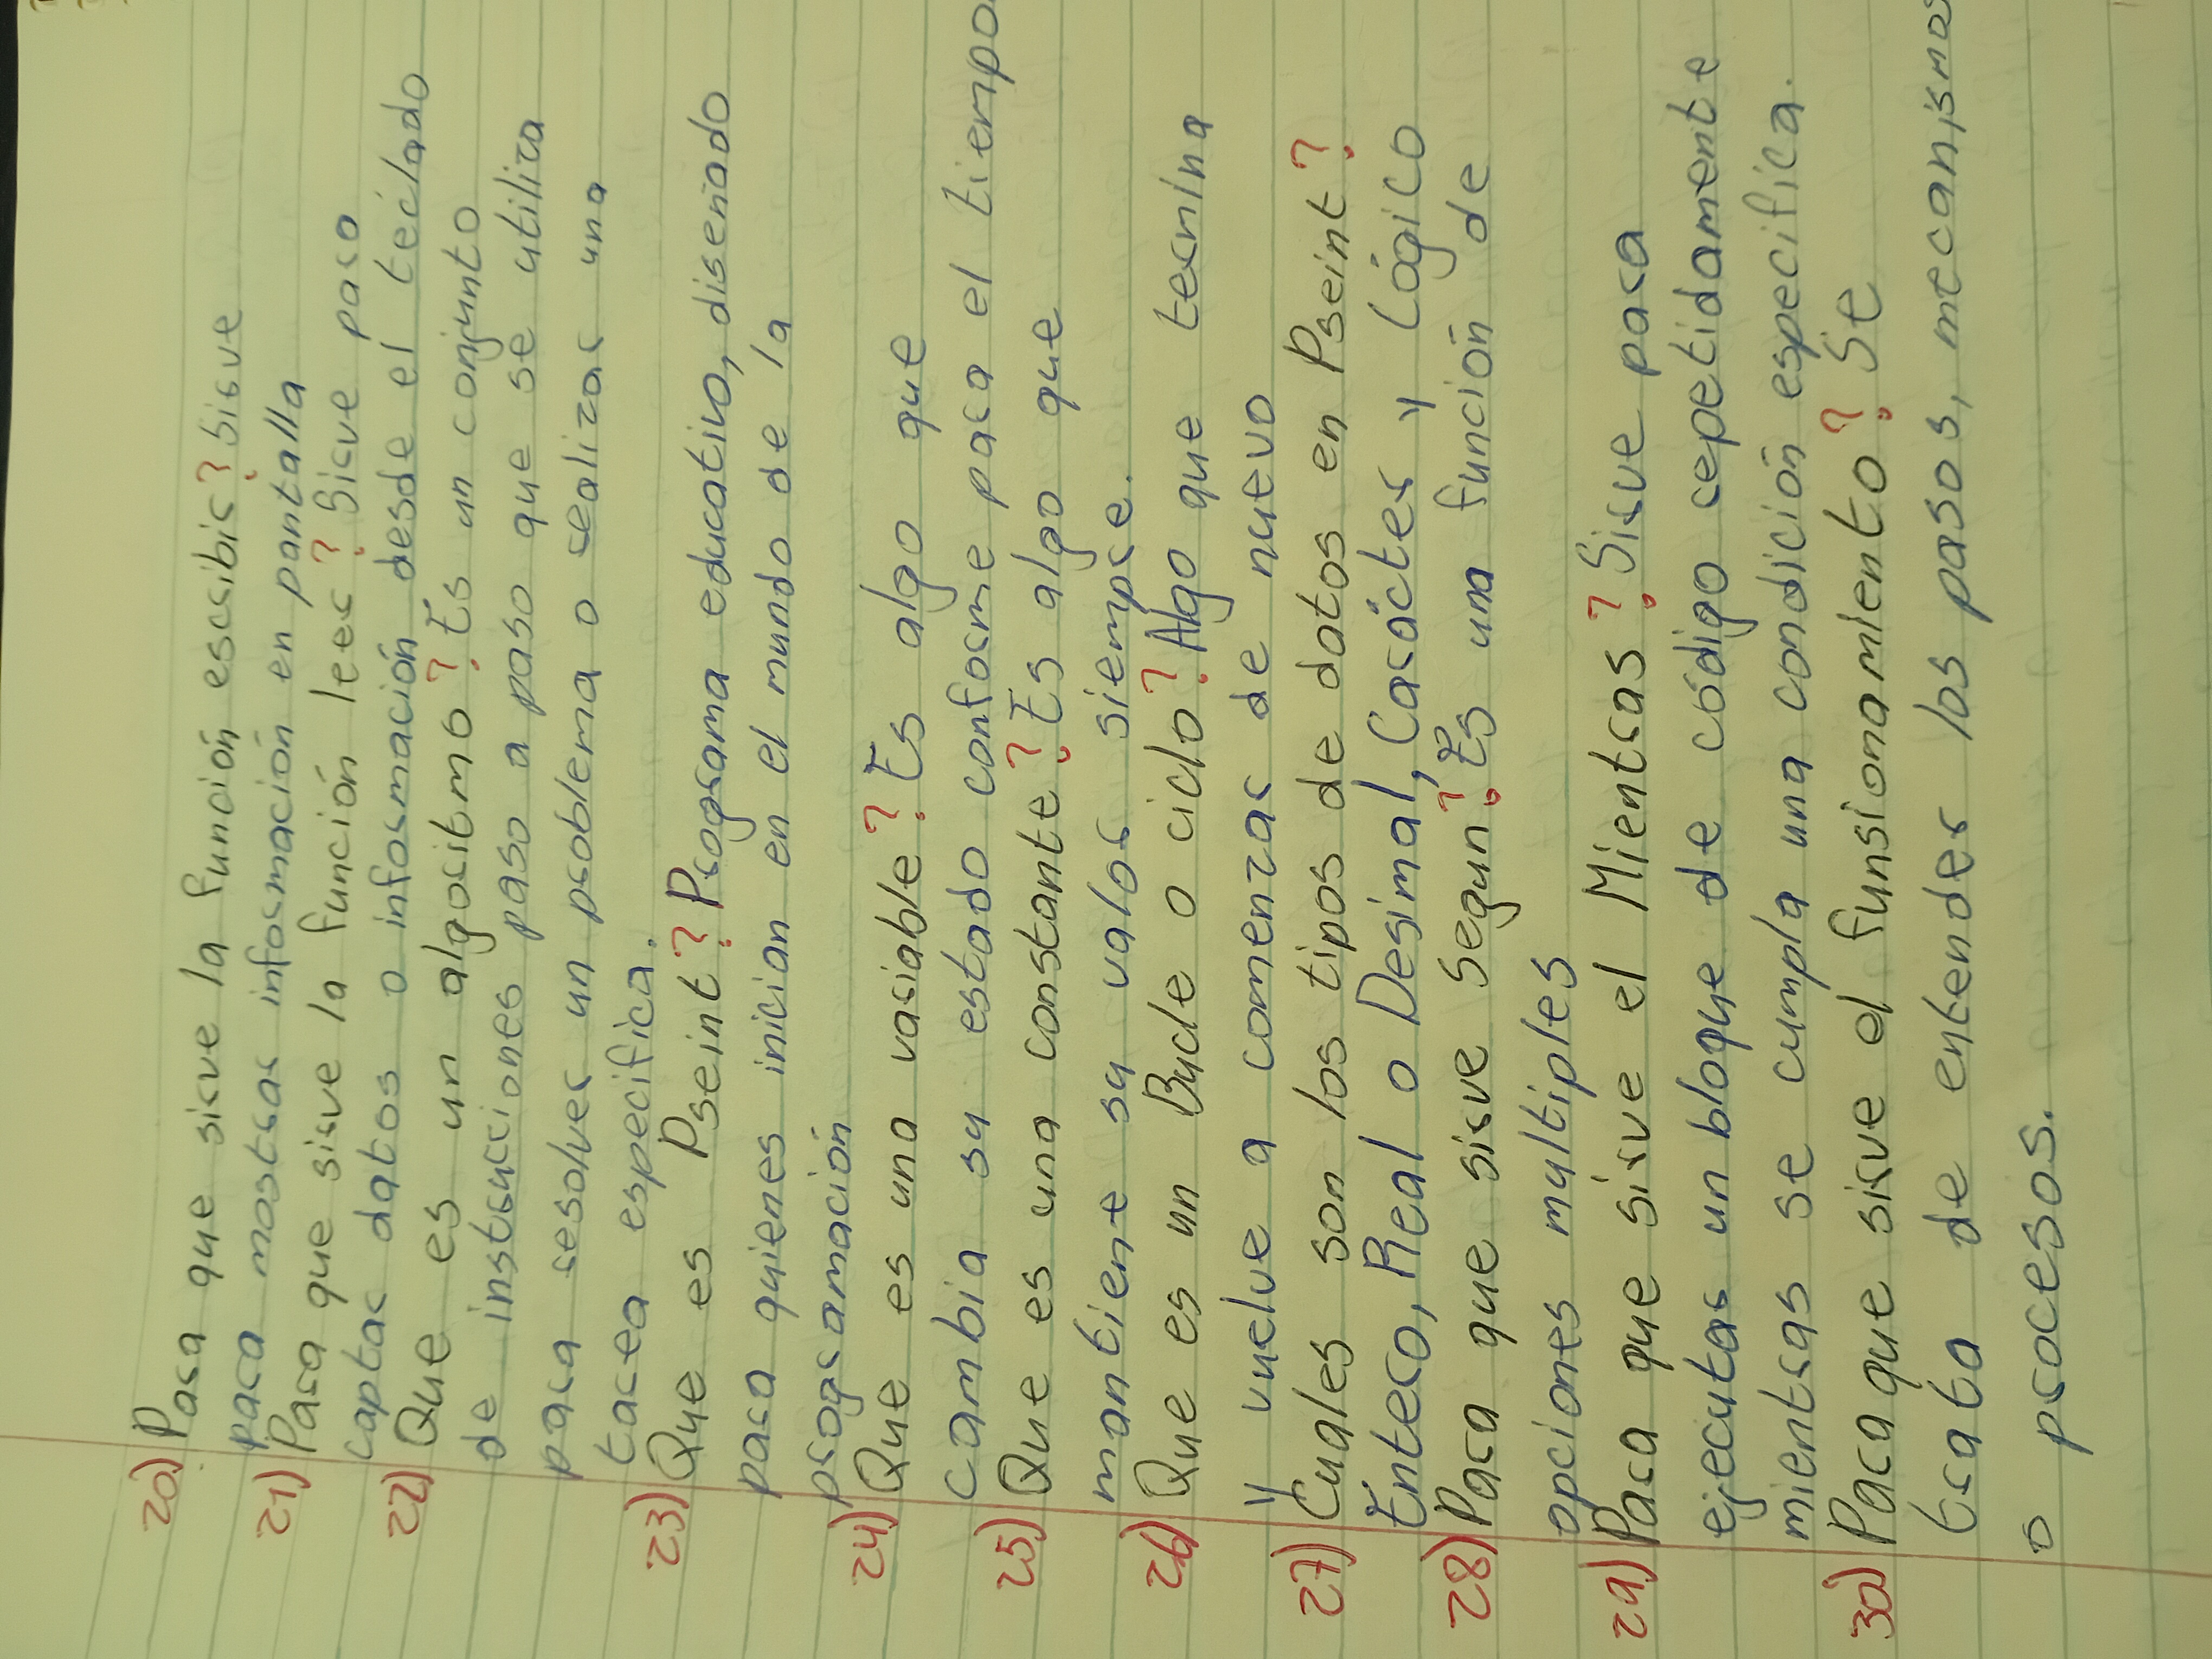 20) Para que sirve la función escribir? Sirve
para mostrar información en pantalla
21) Para que sirve la función leer? Sirve para
captar datos o información desde el teclado
22) Que es un algoritmo? Es un conjunto
de instrucciones paso a paso que se utiliza
para resolver un problema o realizar una
tarea especifica.
23) Que es Pseint? Programa educativo, diseñado
para quienes inician en el mundo de la
programación
24) Que es una variable? Es algo que
cambia su estado conforme pasa el tiempo.
25) Que es una constante? Es algo que
mantiene su valor siempre.
26) Que es un Bucle o ciclo? Algo que termina
y vuelve a comenzar de nuevo
27) Cuales son los tipos de datos en Pseint?
Entero, Real o Desimal, Carácter y Lógico
28) Para que sirve Segun? Es una función de
opciones multiples
29) Para que sirve el Mientras? Sirve para
ejecutar un bloque de código repetidamente
mientras se cumpla una condición especifica.
30) Para que sirve el funsionamiento? Se
trata de entender los pasos, mecanismos
o procesos.